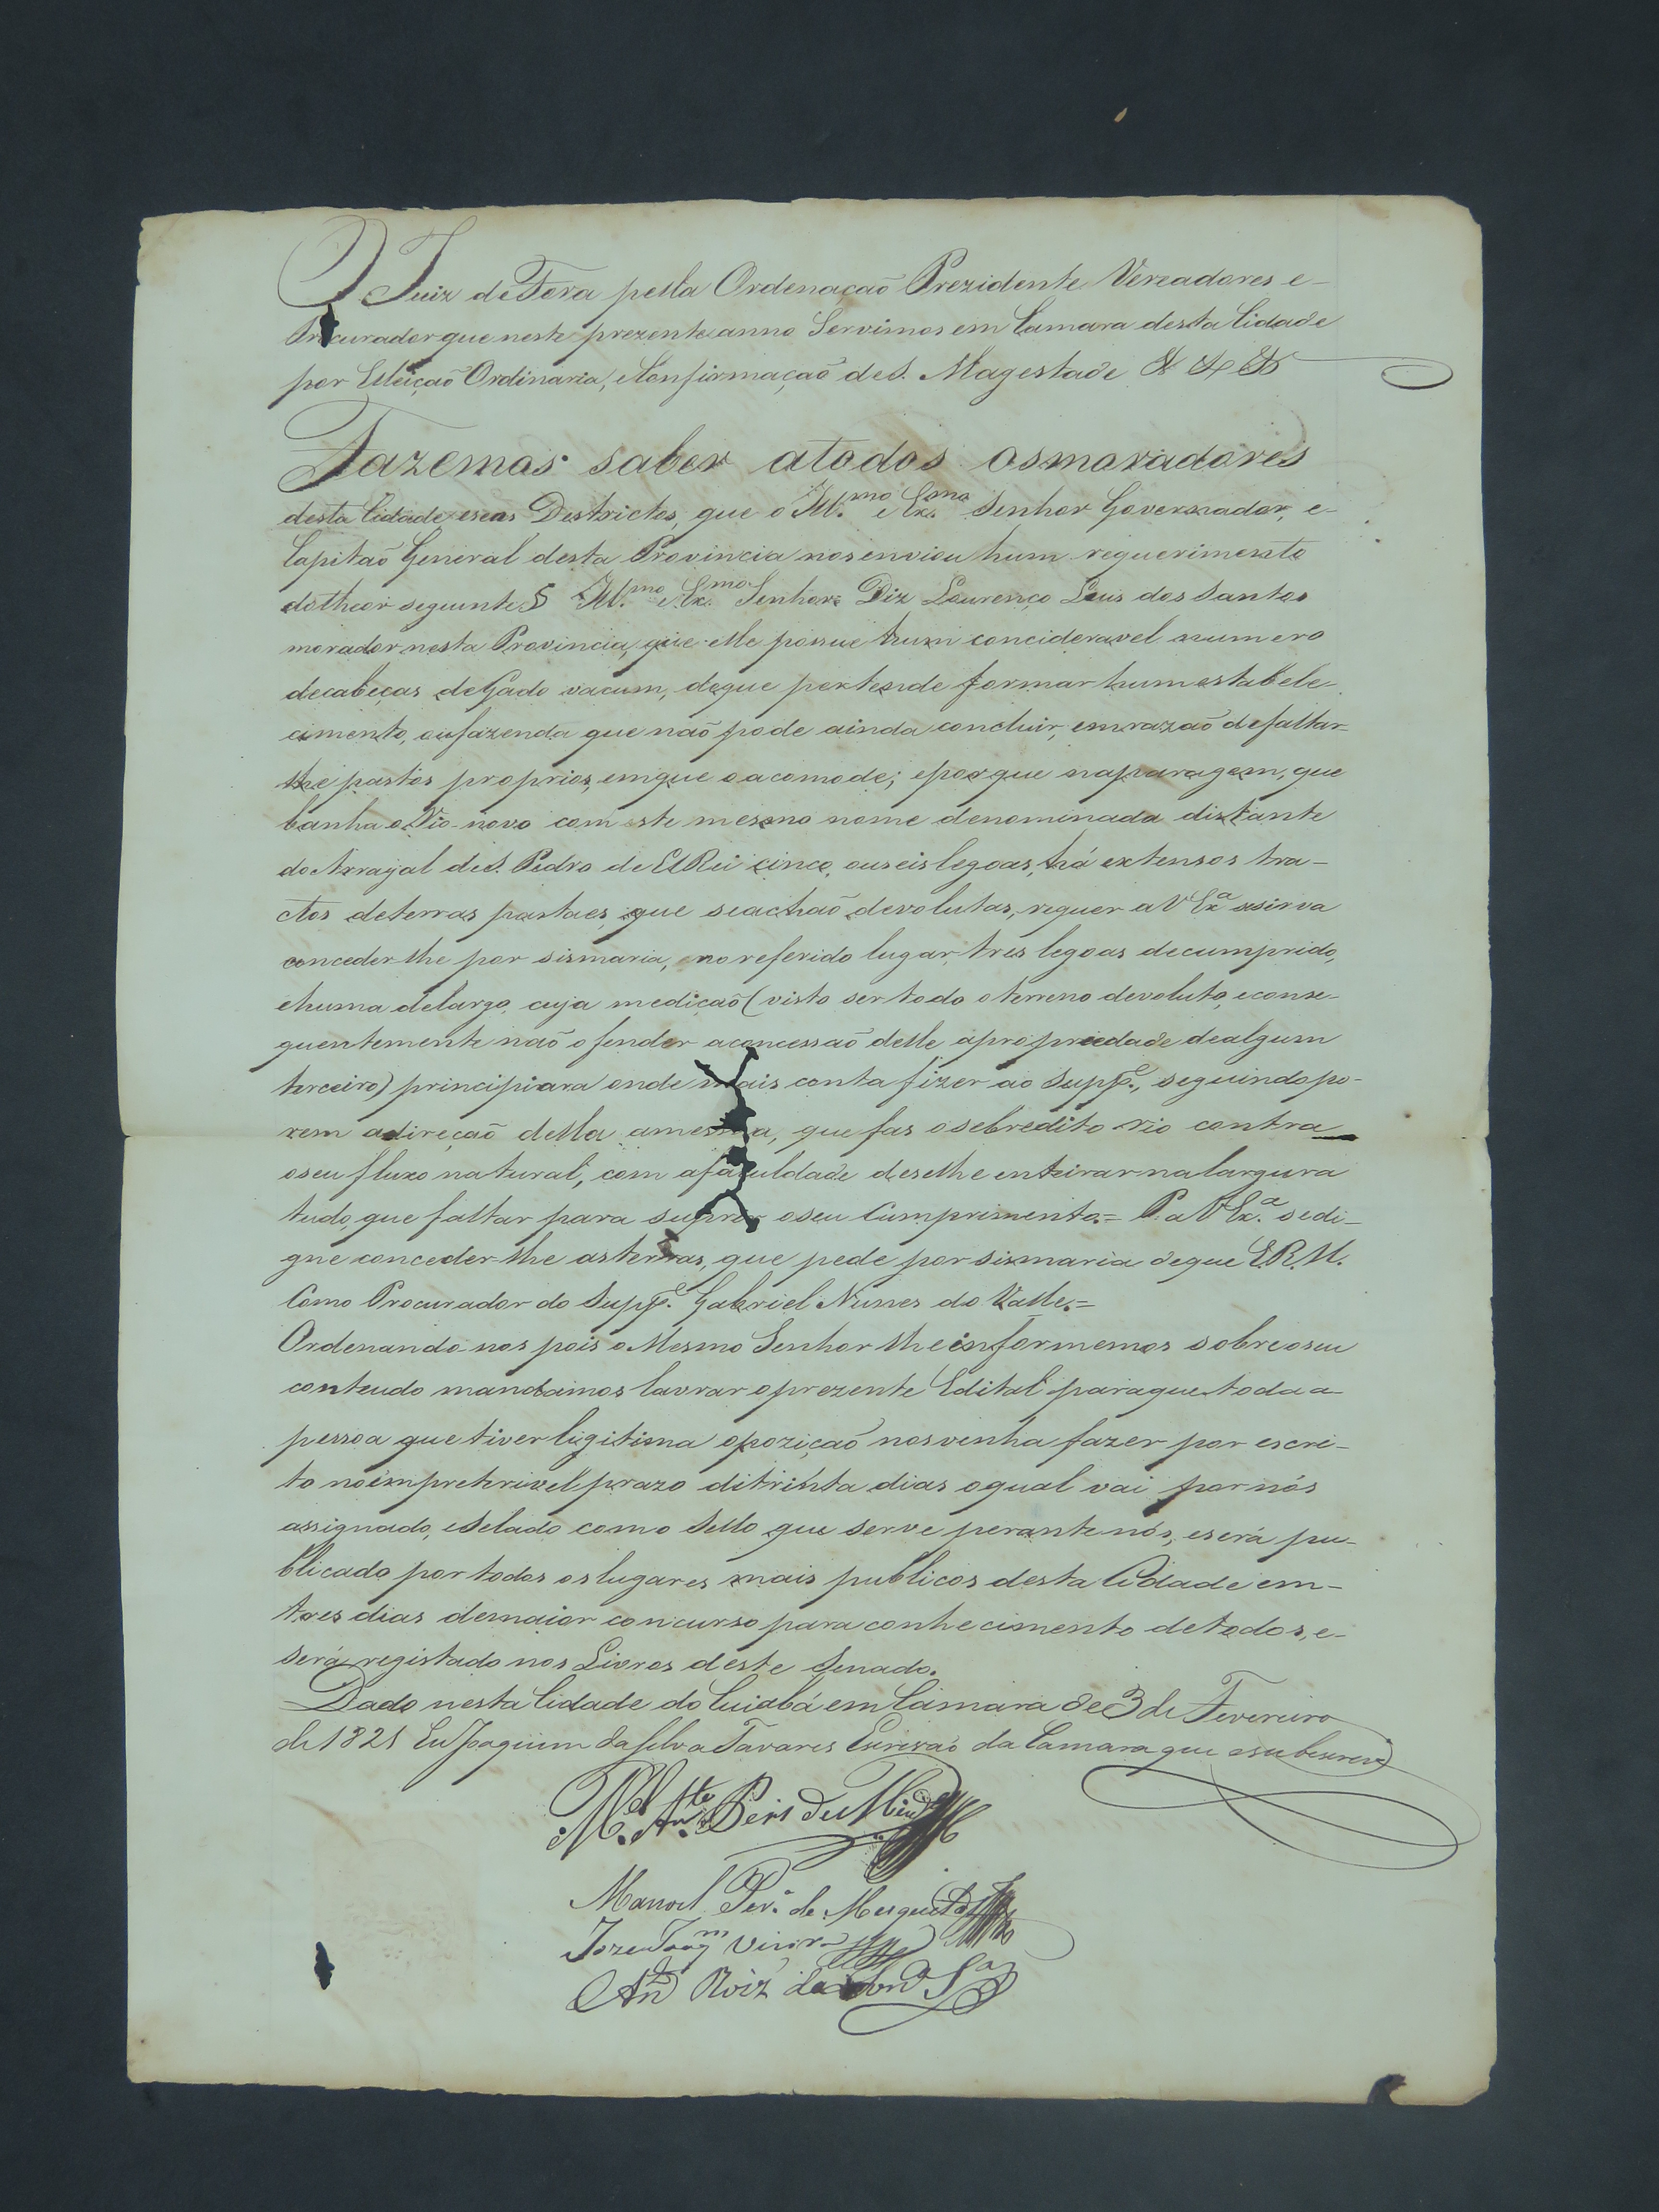 O Juiz de Fora pella Ordenaçaõ Prezidente Vereadores e-
Procurador que neste prezente anno Servimos em Camara desta Cidade
por Elleiçaõ Ordinaria, e Confirmaçaõ de S. Magestade & & &
Fazemos saber atodos osmoradores
desta Cidade, eseos Destrictos, que o Ill.mo e Ex.mo Senhor Governador, e-
Capitaõ General desta Provincia nos enviou hum requerimento
dotheor seguinte § Ill.mo e Ex.mo Senhor= Diz Lourenço Leuis dos Santos
morador nesta Provincia, que elle possue hum concideravel numero
decabeças deGado vacum, deque pertende formar hum estabele-
cimento, oufazenda que naõ pode ainda concluir, emrazaõ defaltar-
lhe pastos proprios, emque o acomode; eporque naparagem, que
banha o Rio-novo com este mesmo nome denominada distante
do Arrayal de S. Pedro de ElRei cinco, ouseis legoas, há extensos tra-
ctos deterras pastaes, que seachaõ devolutas, requer a V Ex.a sesirva
conceder lhe por sismaria, no referido lugar, tres legoas decumprido,
ehuma delargo, cuja mediçaõ (visto ser todo oterreno devoluto, econse-
quentemente naõ ofender aconcessaõ delle apropriedade dealgum
terceiro) principiara onde mais conta fizer ao Supp.e, seguindo po-
rem adireçaõ della amesma, que fas osobredito rio contra
oseu fluxo natural, com afaculdade deselhe enteirar nalargura
tudo, que faltar para suprir oseu Cumprimento.= P. a V Ex.a sedi-
gne conceder-lhe asterras, que pede por sismaria deque E.R.M.
Como Procurador do Supp.e Gabriel Nunes do Valle.=
Ordenando-nos pois o Mesmo Senhor lhe informemos sobre oseu
conteudo mandamos lavrar oprezente Edital paraque toda a-
pessoa que tiver ligitima opoziçaõ nosvenha fazer por escri-
to noimpreterivel prazo ditrinta dias oqual vai por nós
assignado, eSelado como Sello que serve perante nós, eserá pu-
blicado por todos oslugares mais publicos desta Cidade em-
tres dias demaior concurso para conhecimento detodos, e-
será registado nos Livros deste Senado.
Dado nesta Cidade do Cuiabá em Câmara de 3 de Fevereiro
de 1821 Eu Joaquim daSilva Tavares Escrivaõ da Camara que osubescrevi
M.el Ant.o Peis de
Manoel Per.a de Mesquita
Joze Joaq.m Vieira
Ant.o Roiz da